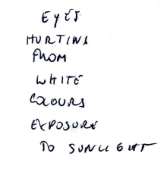 EYES
HURTING
FROM
WHITE
COLOURS
EXPOSURE
TO SUNLIGHT